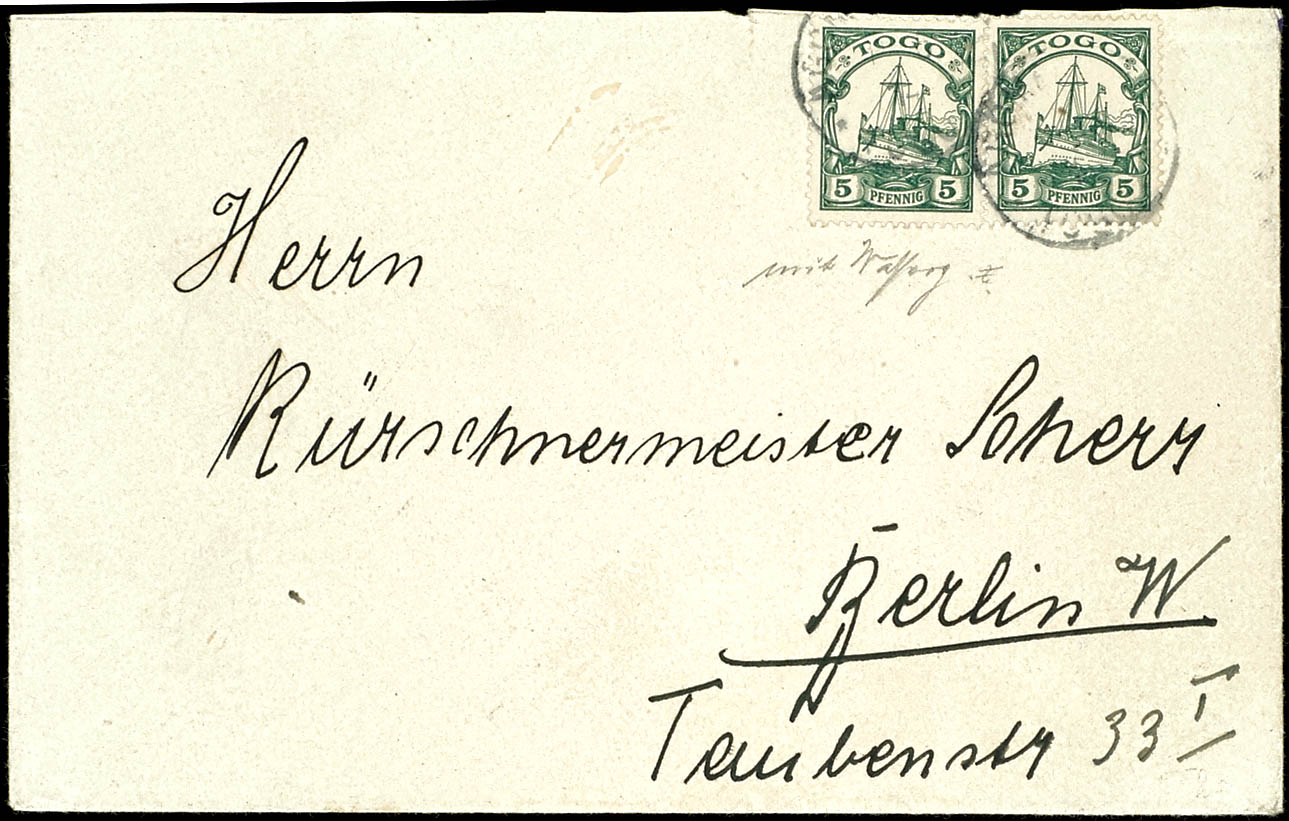 TOGO TOGO
5 PFENNIG 5 5 PFENNIG 5
mit
Herrn
Kürschnermeister Scherr
Berlin W.
Taubenstr 33 I